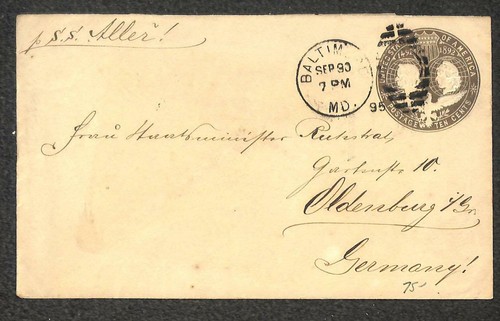 p. S.S. "Aller"!
BALTIMORE
SEP 30
7 PM
MD.
95
UNITED STATES OF AMERICA
1492 1892
POSTAGE TEN CENTS
Frau Staatsminister
Gartenstr 10.
Oldenburg i/Gr.
Germany!
75